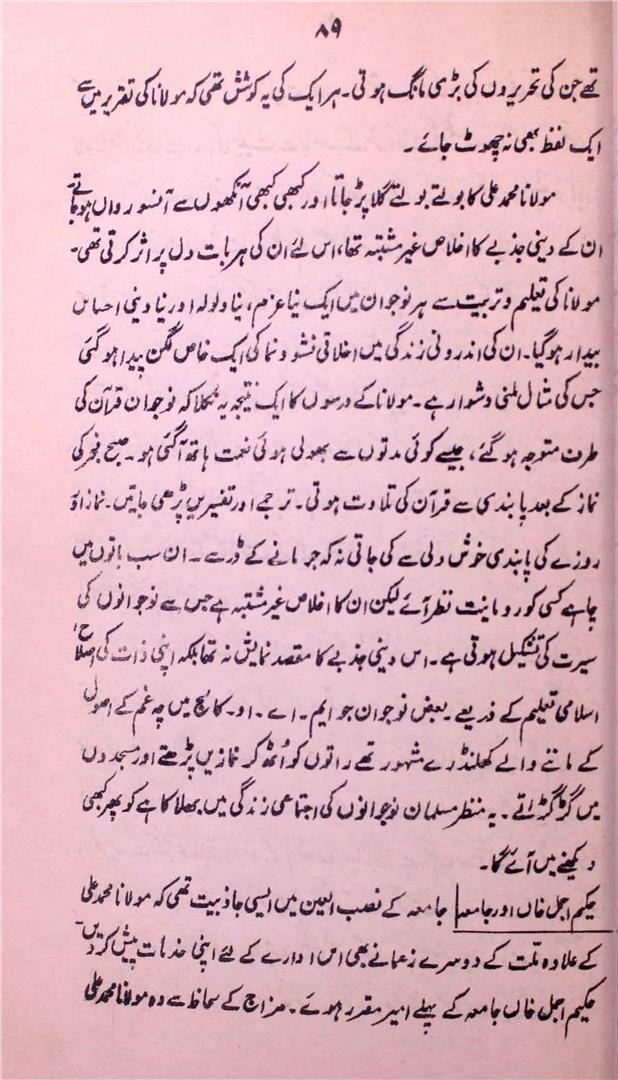 ۸۹
تھے جن کی تحریروں کی بڑی مانگ ہوتی۔ ہر ایک کی یہ کوشش تھی کہ مولانا کی تقریر میں سے
ایک لفظ بھی نہ چھوٹ جائے۔
مولانا محمد علی کا بولتے بولتے گلا پڑ جاتا اور کبھی کبھی آنکھوں سے آنسو رواں ہو جاتے
ان کے دینی جذبے کا اخلاص غیر مشتبہ تھا، اس لئے ان کی ہر بات دل پر اثر کرتی تھی۔
مولانا کی تعلیم و تربیت سے ہر نوجوان میں ایک نیا عزم، نیا ولولہ اور نیا دینی احساس
بیدار ہوگیا۔ ان کی اندرونی زندگی میں اخلاقی نشو و نما کی ایک خاص لگن پیدا ہوگئی
جس کی مثال ملنی دشوار ہے۔ مولانا کے درسوں کا ایک نتیجہ یہ نکلا کہ نوجوان قرآن کی
طرف متوجہ ہوگئے، جیسے کوئی مدتوں سے بھولی ہوئی نعمت ہاتھ آگئی ہو۔ صبح فجر کی
نماز کے بعد پابندی سے قرآن کی تلاوت ہوتی۔ ترجمے اور تفسیریں پڑھی جاتیں۔ نماز اور
روزے کی پابندی خوش دلی سے کی جاتی نہ کہ جرمانے کے ڈر سے۔ ان سب باتوں میں
چاہے کسی کو رومانیت نظر آئے لیکن ان کا اخلاص غیر مشتبہ ہے جس سے نوجوانوں کی
سیرت کی تشکیل ہوتی ہے۔ اس دینی جذبے کا مقصد نمایش نہ تھا بلکہ اپنی ذات کی اصلاح،
اسلامی تعلیم کے ذریعے۔ بعض نوجوان جو ایم۔ اے۔ او۔ کالج میں چہ غم کے اصول
کے ماننے والے کھلنڈرے مشہور تھے راتوں کو اُٹھ کر نمازیں پڑھتے اور مسجدوں
میں گڑگڑاتے۔ یہ منظر مسلمان نوجوانوں کی اجتماعی زندگی میں بھلا کاہے کو پھر کبھی
دیکھنے میں آئے گا۔
حکیم اجمل خاں اور جامعہ جامعہ کے نصب العین میں ایسی جاذبیت تھی کہ مولانا محمد علی
کے علاوہ ملت کے دوسرے زعما نے بھی اس ادارے کے لئے اپنی خدمات پیش کردیں۔
حکیم اجمل خاں جامعہ کے پہلے امیر مقرر ہوئے۔ مزاج کے لحاظ سے وہ مولانا محمد علی